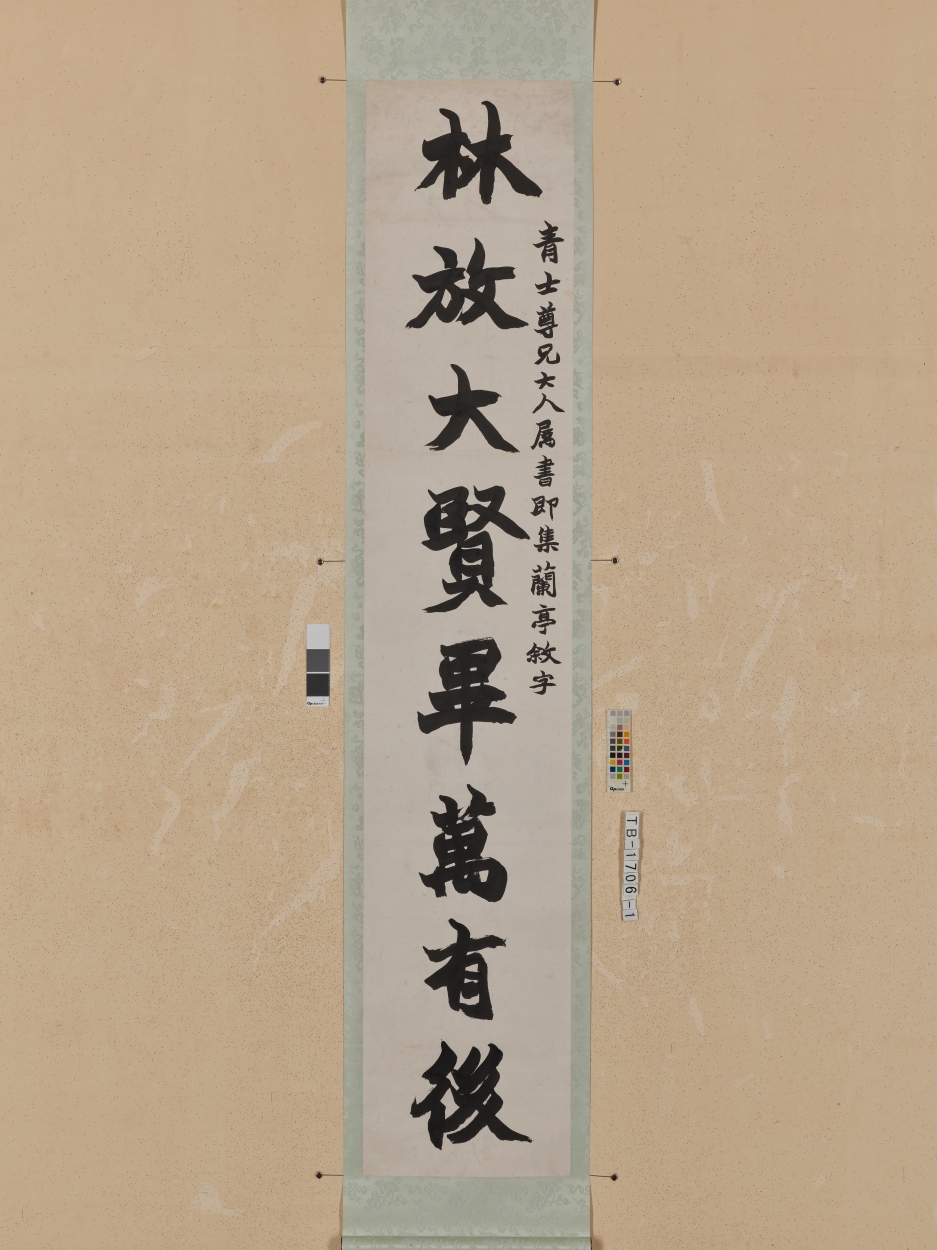 青士尊兄大人属書即集蘭亭敘字
林放大賢畢萬有後
TB-1706-1